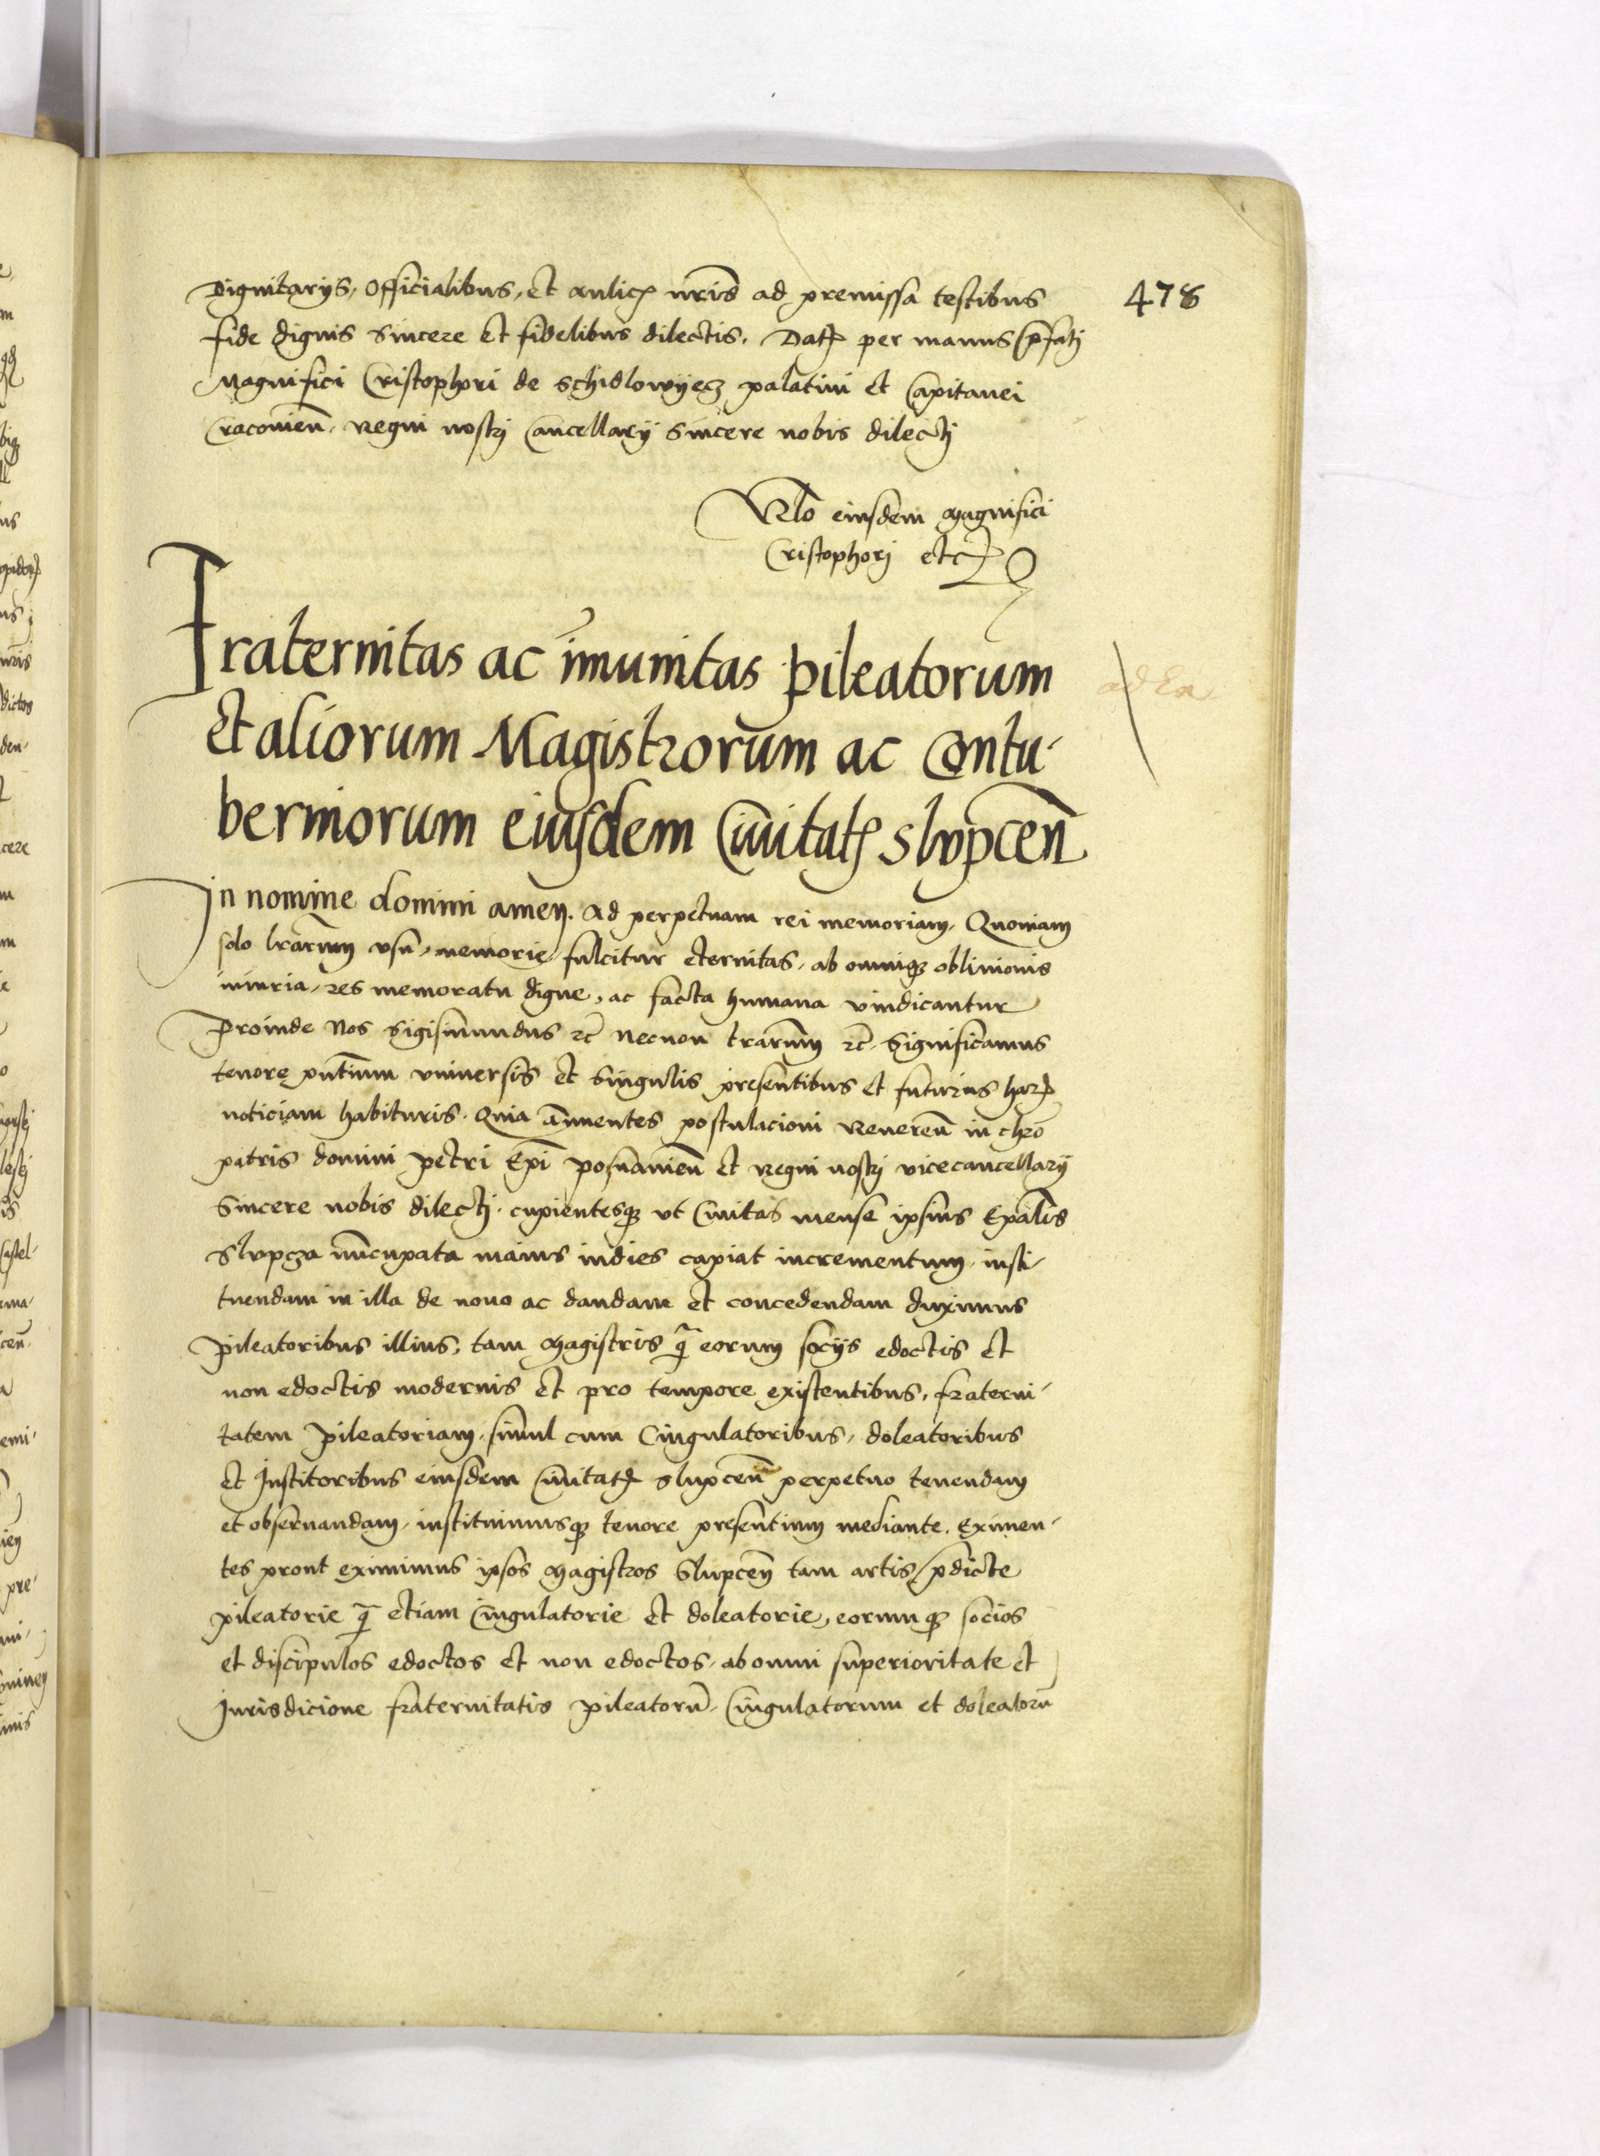 Dignitarijs, Officialibus, et aulicꝭ nr̄is ad premissa testibus
fide dignis sincere et fidelibus dilectis. Datꝭ per manus p̄fatj
Magnifici Cristophori de Schidlowyecz palatini et Capitanei
Cracovieñ. Regni nostrj Cancellarij sincere nobis dilectj
478
Rlō eiusdem Magnifici
Cristophorj etcꝭ
Fraternitas ac im̄unitas pileatorum
Et aliorum Magistrorum ac Contu-
berniorum eiusdem Ciuitatꝭ Slvpceñ
ad
In nomine domini amen. Ad perpetuam rei memoriam. Quoniam
solo lr̄arum vsu, memorie fulcitur eternitas, ab omniqꝫ obliuionis
iniuria, res memoratu digne, ac facta humana vindicantur
Proinde Nos Sigismundus etc̄ Necnon terrarum etc̄. Significamus
tenore pn̄tium vniuersis et singulis presentibus et futuris harꝭ
noticiam habituris. Quia an̄uentes postulacioni Reuereñ in chr̄o
patris domini Petri Ep̄i posnanieñ et Regni nostrj vicecancellarij
sincere nobis dilectj. cupientesqꝫ vt Ciuitas mense ipsius Ep̄alis
Slvpcza nūcupata maius indies capiat incrementum, insti-
tuendam in illa de nouo ac dandam et concedendam duximus
pileatoribus illius, tam Magistris q̄ eorum socijs edoctis et
non edoctis modernis et pro tempore existentibus, fraterni-
tatem pileatoriam, simul cum Cingulatoribus, doleatoribus
et Institoribus eiusdem Ciuitatꝭ Slupceñ perpetuo tenendam
et obseruandam, instituimusqꝫ tenore presentium mediante. Eximen-
tes prout eximimus ipsos Magistros Slupceñ tam artis p̄dicte
pileatorie q̄ etiam Cingulatorie et doleatorie, eorumqꝫ socios
et discipulos edoctos et non edoctos, ab omni superioritate et
Jurisdicione fraternitatis pileatorū, Cingulatorum et doleatorū